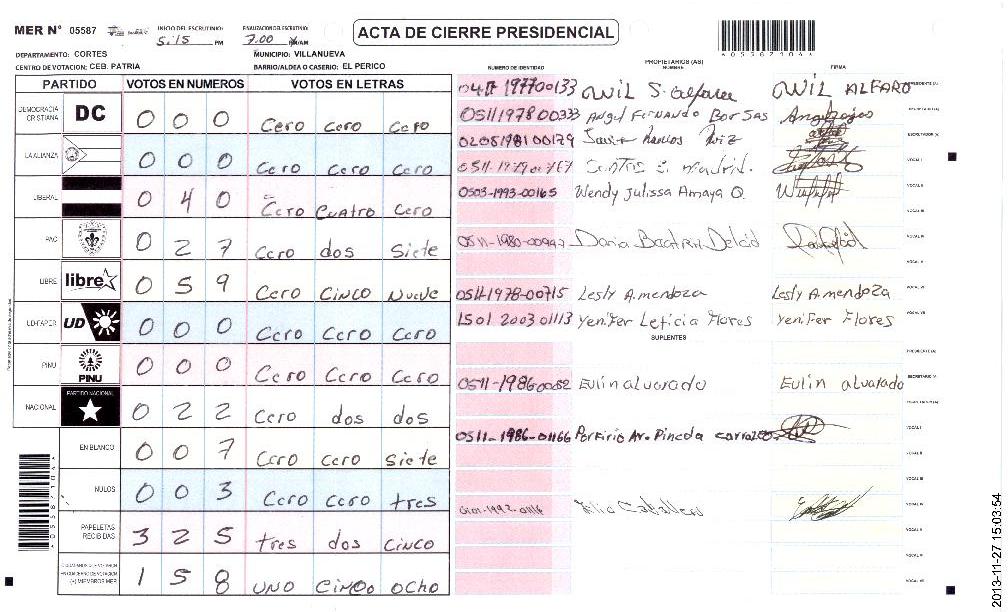 MER Nº 05587
INICIO DEL ESCRUTINIO:
5:15 PM
FINALIZACION DEL ESCRUTINIO:
7:00
ACTA DE CIERRE PRESIDENCIAL
DEPARTAMENTO: CORTES
MUNICIPIO: VILLANUEVA
CENTRO DE VOTACION: CEB. PATRIA
BARRIO/ALDEA O CASERIO: EL PERICO
PARTIDO VOTOS EN NUMEROS VOTOS EN LETRAS
DEMOCRACIA CRISTIANA DC 0 0 0 Cero cero Cero
LA ALIANZA 0 0 0 Cero Cero Cero
LIBERAL 0 4 0 Cero Cuatro Cero
PAC 0 2 7 Cero dos Siete
LIBRE libre 0 5 9 Cero Cinco Nueve
UD-FAPER UD 0 0 0 Cero Cero Cero
PINU PINU 0 0 0 Cero Cero Cero
NACIONAL PARTIDO NACIONAL 0 2 2 Cero dos dos
EN BLANCO 0 0 7 Cero cero Siete
NULOS 0 0 3 Cero cero tres
PAPELETAS RECIBIDAS 3 2 5 tres dos Cinco
(+) MIEMBROS MER 1 5 8 UNO Cinco Ocho
PROPIETARIOS (AS)
NUMERO DE IDENTIDAD NOMBRE FIRMA
WIL S. alfaro WIL ALFARO
0511197800333 Angel Fernando Borjas
0205198100179
0503-1993-00165 Wendy Julissa Amaya O.
Daria Beatriz Delcid
0511-1978-00715 Lesly A mendoza Lesly A mendoza
1501 2003 01113 Yenifer Leticia Flores Yenifer Flores
SUPLENTES
Eulin alvarado Eulin alvarado
0511-1986-01166 Porfirio Av. Pineda
2013-11-27 15:03:54